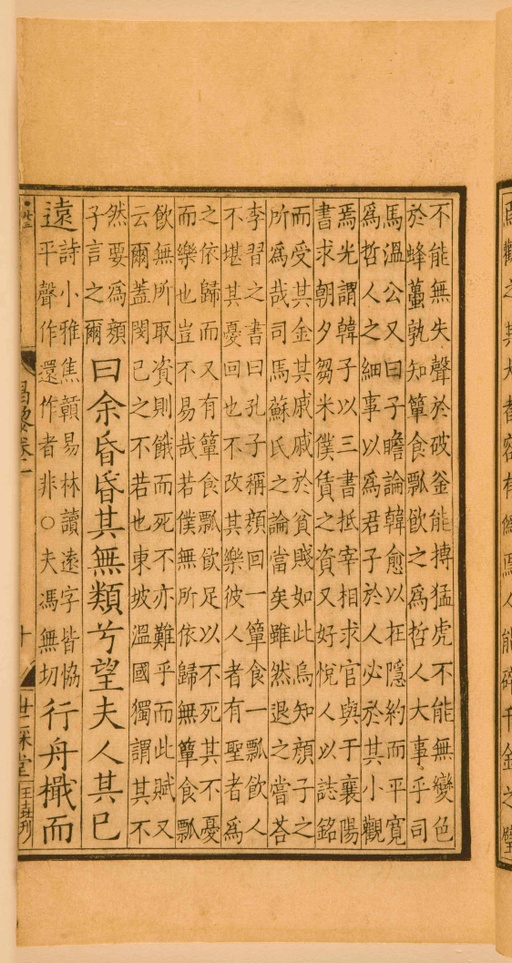 不能無失聲於破釜能搏猛虎不能無變色
於蜂蠆孰知簞食瓢飲之爲哲人大事乎司
馬溫公又曰子瞻論韓愈以在隱約而平寬
爲哲人之細事以爲君子於人必於其小觀
焉光謂韓子以三書抵宰相求官與于襄陽
書求朝夕芻米僕賃之資又好悅人以誌銘
而受其金其戚戚於貧賤如此烏知顏子之
所爲哉司馬蘇氏之論當矣雖然退之當荅
李習之書曰孔子稱顏回一簞食一瓢飲人
不堪其憂回也不改其樂彼人者有聖者爲
之依歸而又有簞食瓢飲足以不死其不憂
而樂也豈不易哉若僕無所依歸無簞食瓢
飲無所取資則餓而死不亦難乎而此賦又
云爾蓋閔己之不若也東坡溫國獨謂其不
然要爲顏
子言之爾
曰余昏昏其無類兮望夫人其已
遠
詩小雅焦贛易林讀遠字皆恊
平聲作還作者非○夫馮無切
行舟檝而
卷一
十
世綵堂